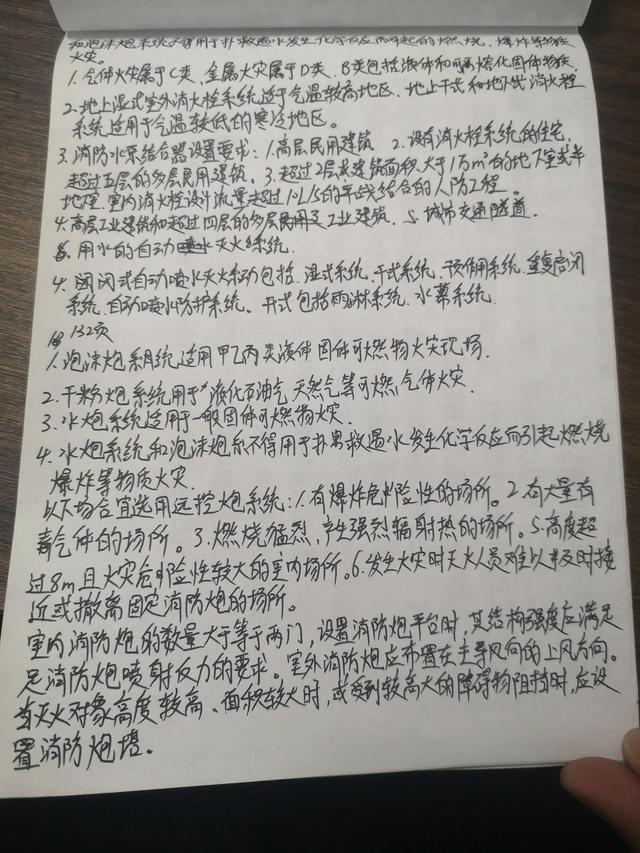 和泡沫炮系统不得用于扑救遇水发生化学反应而引起的燃烧、爆炸等物质
火灾。
1.气体火灾属于C类、金属火灾属于D类、B类包括液体和可熔化固体物质
2.地上湿式室外消火栓系统适于气温较高地区、地上干式和地下式消火栓
系统适用于气温较低的寒冷地区。
3.消防水泵结合器设置要求:1.高层民用建筑 2.设有消火栓系统的住宅,
超过五层的多层民用建筑、3.超过2层或建筑面积大于1万m²的地下室或半
地下室、室内消火栓设计流量超过10L/S的平战结合的人防工程。
4.高层工业建筑和超过四层的多层工业建筑、5.城市交通隧道.
6.用水的自动灭火系统.
4.闭式自动喷水灭火系统包括.湿式系统、干式系统、预作用系统.重复启闭
系统、自动喷水防护系统。开式包括雨淋系统、水幕系统.
132页
1.泡沫炮系统适用甲乙丙类液体固体可燃物火灾现场.
2.干粉炮系统用于液化石油气 天然气等可燃气体火灾.
3.水炮系统适用于一般固体可燃物火灾.
4.水炮系统和泡沫炮系不得用于扑救遇水发生化学反应而引起燃烧
爆炸等物质火灾.
以下场合宜选用远控炮系统:1.有爆炸危险性的场所。2.有大量有
毒气体的场所。3.燃烧猛烈,产生强烈辐射热的场所。5.高度超
过8m且火灾危险性较大的室内场所。6.发生火灾时灭火人员难以及时接
近或撤离固定消防炮的场所。
室内消防炮的数量大于等于两门,设置消防炮平台时,其结构强度应满足
足消防炮喷射反力的要求。室外消防炮应布置在主导风向的上风方向。
当灭火对象高度较高、面积较大时,或受到较高大的障碍物阻挡时,应设
置消防炮塔。